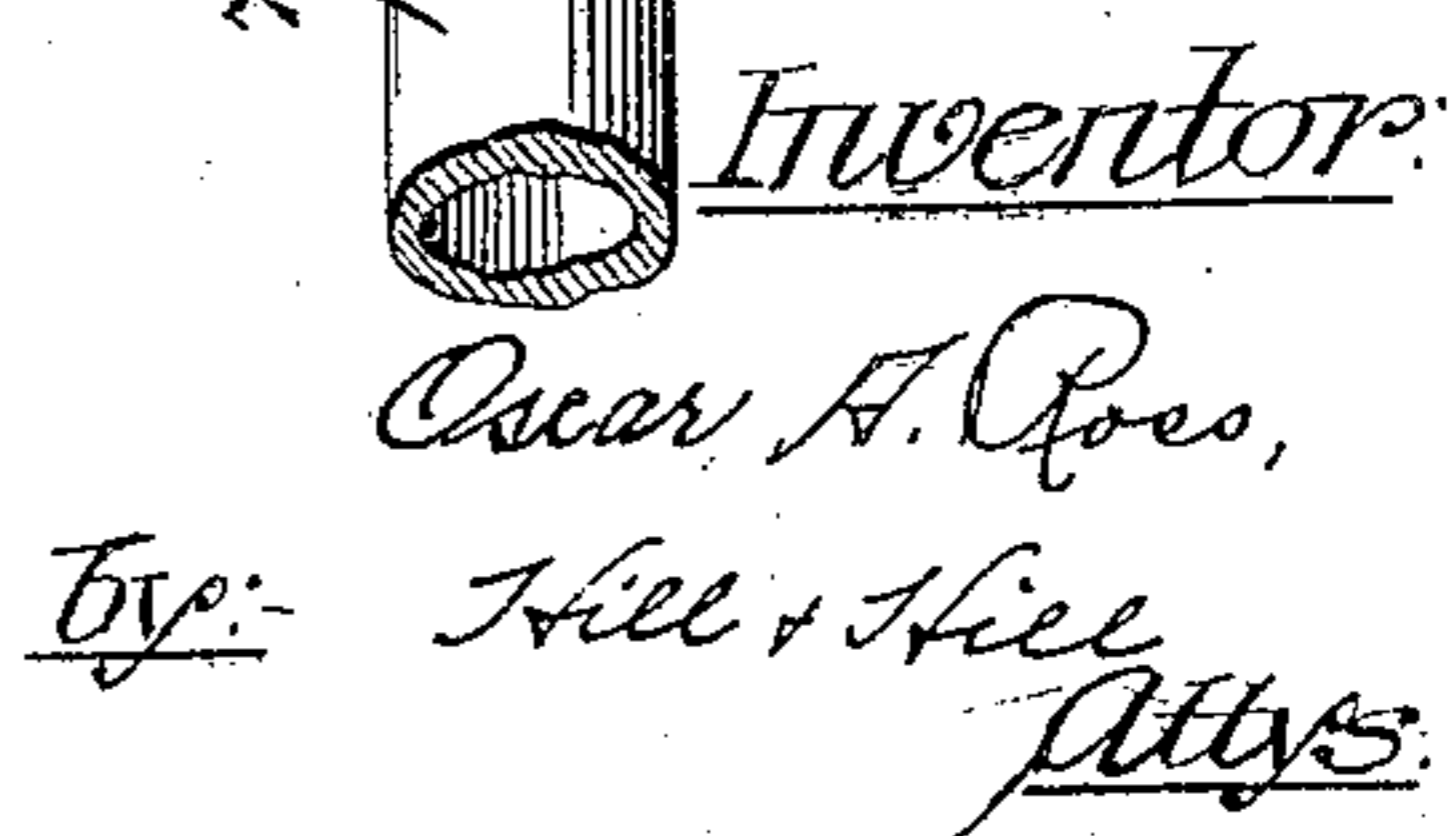 Inventor:
Oscar A. Ross,
By:-
Hill & Hill
Attys.